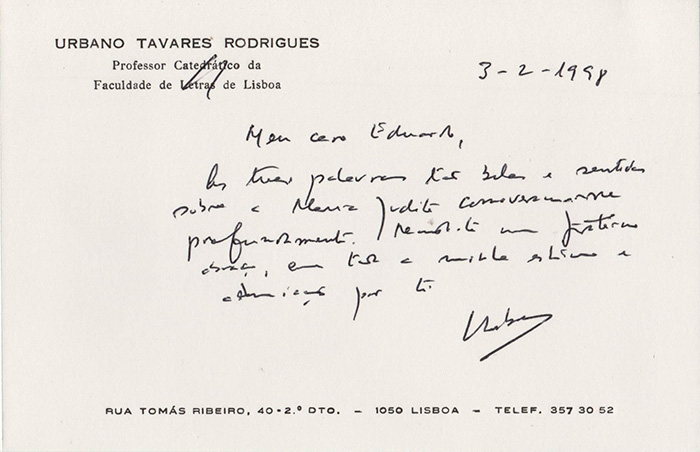 URBANO TAVARES RODRIGUES
Professor Catedrático da
Faculdade de Letras de Lisboa
3-2-1998
Meu caro Eduardo,
As tuas palavras tão belas e sentidas
sobre a Maria Judite comoveram-me
profundamente. um fraterno
abraço, com toda a minha estima e
admiração por ti.
Urbano
RUA TOMÁS RIBEIRO, 40-2.º DTO. – 1050 LISBOA – TELEF. 357 30 52